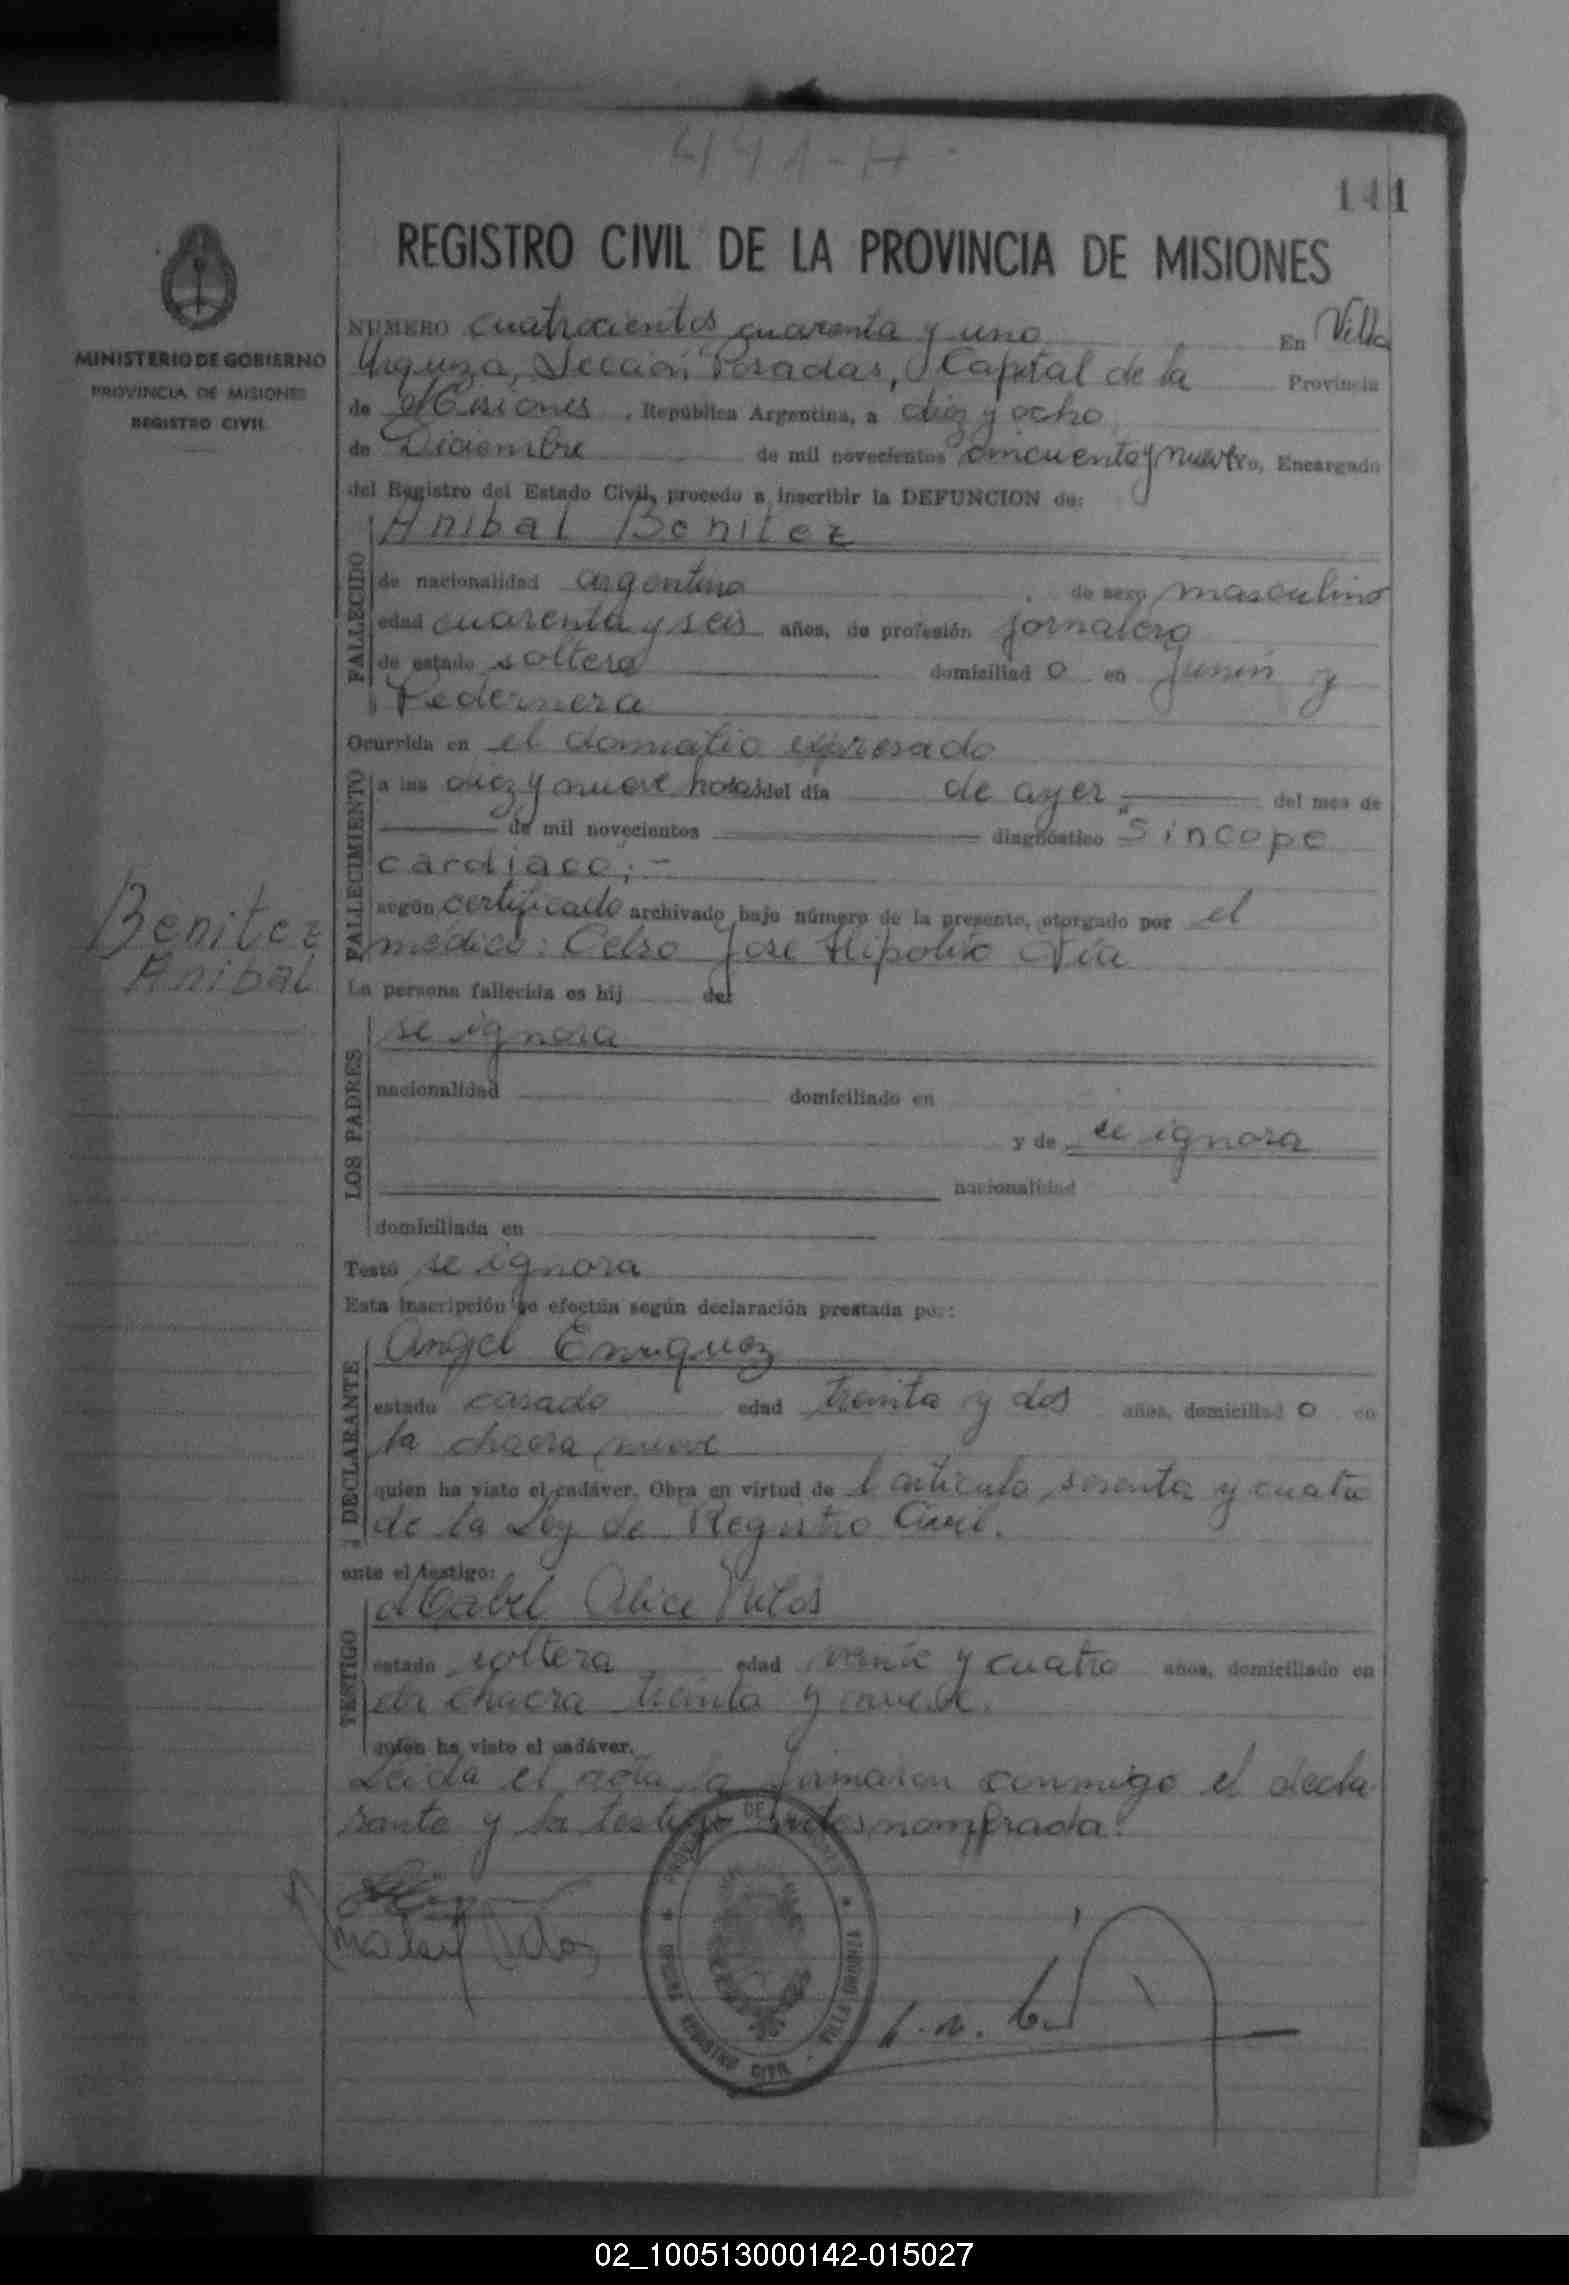 441-H
141
REGISTRO CIVIL DE LA PROVINCIA DE MISIONES
MINISTERIO DE GOBIERNO
PROVINCIA DE MISIONES
REGISTRO CIVIL
NUMERO cuatrocientos cuarenta y uno En Villa
Urquiza, Sección Posadas, Capital de la Provincia
de Misiones, República Argentina, a diez y ocho
de Diciembre de mil novecientos cincuenta y nueve, Encargado
del Registro del Estado Civil, procedo a inscribir la DEFUNCION de:
Anibal Benitez
FALLECIDO
de nacionalidad argentina de sexo masculino
edad cuarenta y seis años, de profesión jornalero
de estado soltero domiciliad o en Junin y
Pedernera
Ocurrida en el domicilio expresado
FALLECIMIENTO
a las diez y nueve horas del día de ayer del mes de
de mil novecientos diagnóstico "Sincope
cardiaco;-
según certificado archivado bajo número de la presente, otorgado por el
médico: Celso José Hipolito
Benitez
Anibal
La persona fallecida es hij de:
LOS PADRES
se ignora
nacionalidad domiciliado en
y de se ignora
nacionalidad
domiciliada en
Testó se ignora
Esta inscripción se efectúa según declaración prestada por:
DECLARANTE
Angel Enriquez
estado casado edad treinta y dos años, domiciliad o en
la chacra nueve
quien ha visto el cadáver. Obra en virtud de l articulo sesenta y cuatro
de la Ley de Registro Civil.
ante el testigo:
TESTIGO
Mabel Alice
estado soltera edad veinte y cuatro años, domiciliado en
la chacra treinta y nueve.
quien ha visto el cadáver.
Leida el acta la firmaron conmigo el decla
rante y la testigo antes nombrada.
PROVINCIA DE MISIONES
OFICINA REGISTRO CIVIL - VILLA URQUIZA
02_100513000142-015027